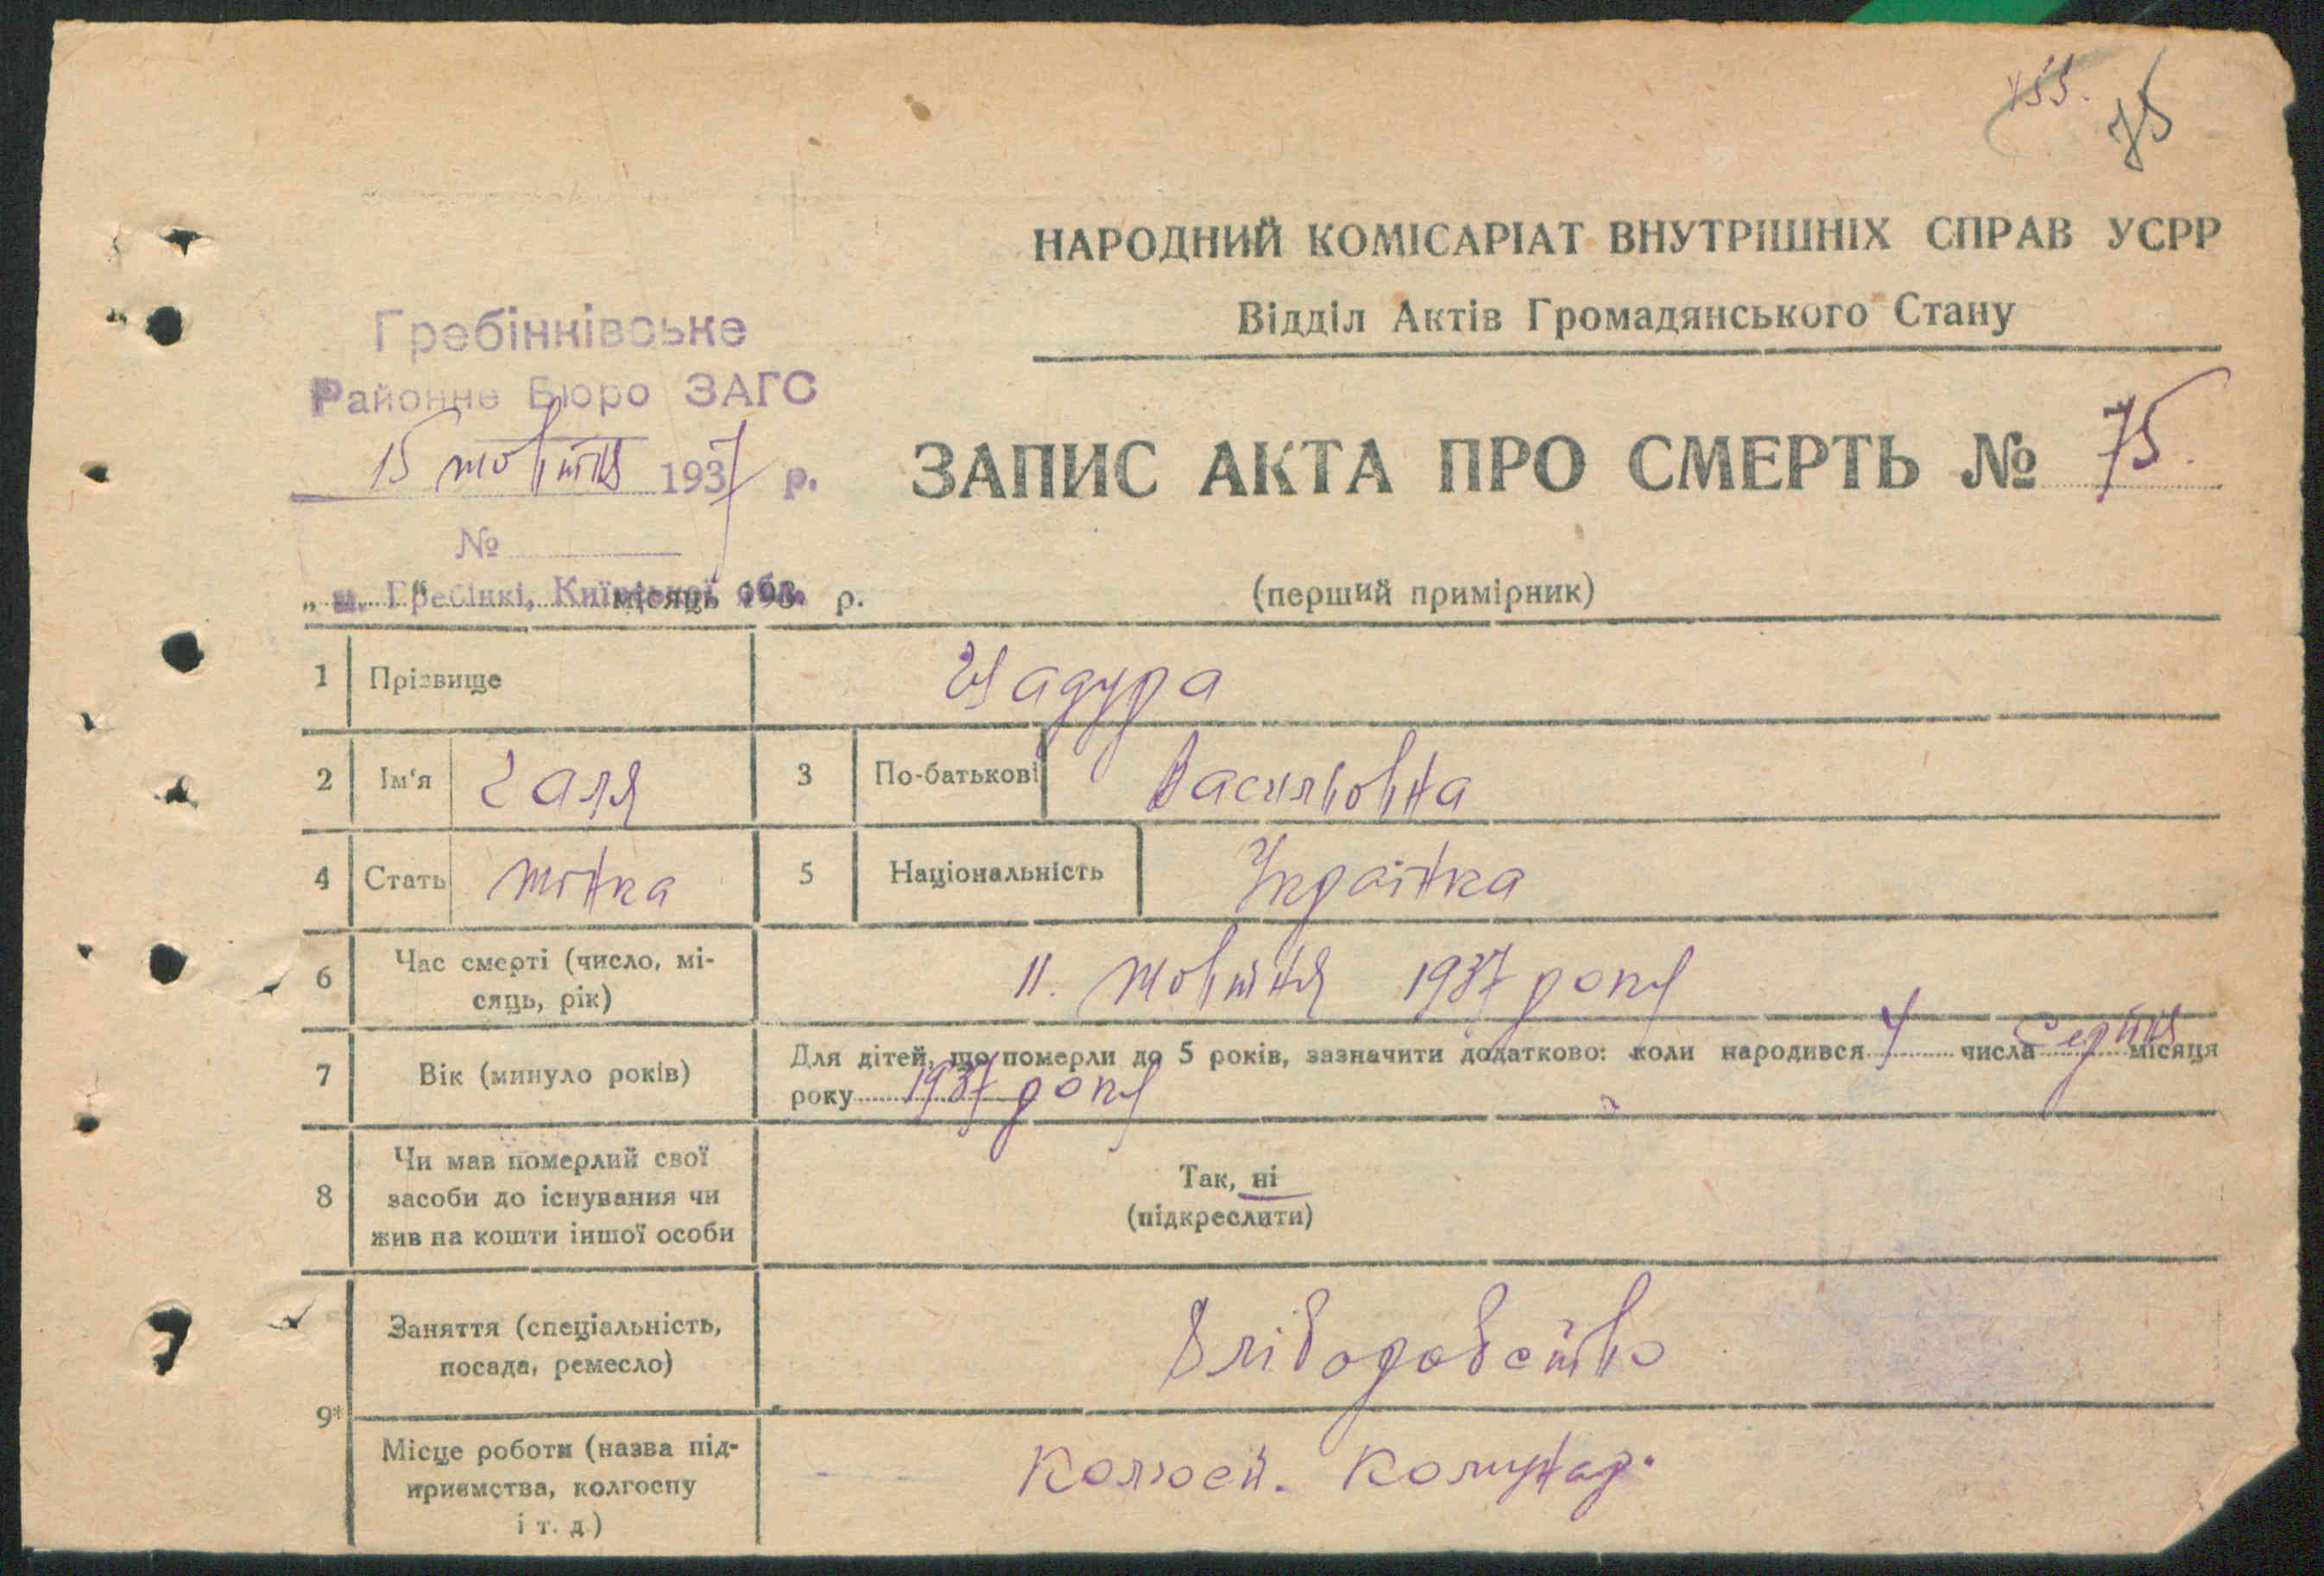 75
НАРОДНИЙ КОМІСАРІАТ ВНУТРІШНІХ СПРАВ УСРР
Відділ Актів Громадянського Стану
Гребінківське
Районне Бюро ЗАГС
15 жовтня 1937 р.
№
м. Гребінкі, Київської обл.
„ “ місяць 193 р.
ЗАПИС АКТА ПРО СМЕРТЬ № 75.
(перший примірник)
1 Прізвище Шадура
2 Ім'я Галя 3 По-батькові Васильовна
4 Стать жінка 5 Національність Українка
6 Час смерті (число, мі-
сяць, рік) 11. жовтня 1937 року
7 Вік (минуло років) Для дітей, що померли до 5 років, зазначити додатково: коли народився 7 числа Серпня місяця
року 1937 року
8 Чи мав померлий свої
засоби до існування чи
жив на кошти іншої особи
Так, ні
(підкреслити)
9* Заняття (специіальність,
посада, ремесло) Хліборобство
Місце роботи (назва під-
приємства, колгоспу
і т. д.) Колгосп. Комунар.